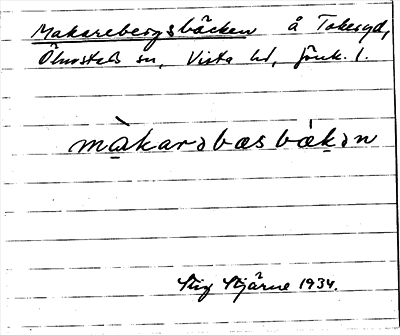 Makarebergsbäcken å Takeryd,
Ölmstads sn, Vista hd, Jönk. l.
màkarəbæsbǽkən
Stig Stjärne 1934.